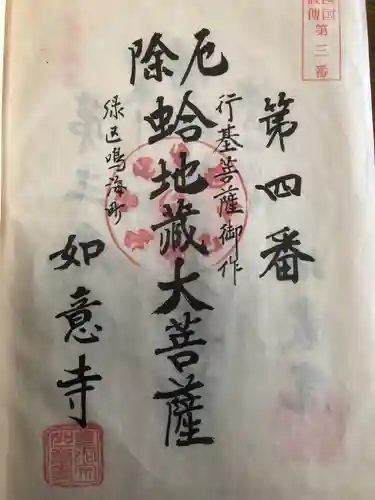 第三番
第四番
行基菩薩御作
厄除
蛤地蔵大菩薩
緑区鳴海町
如意寺